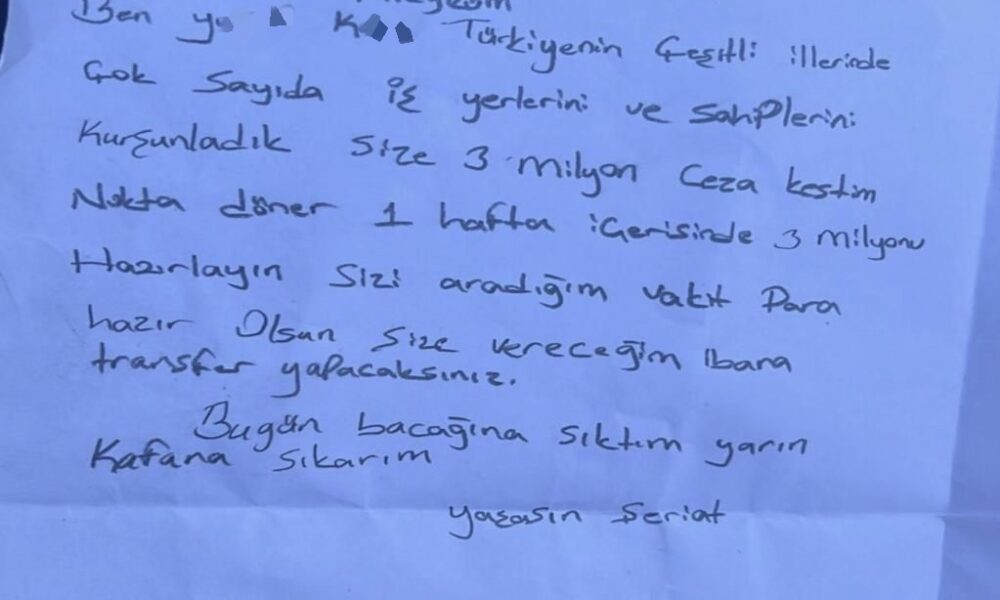 Ben Türkiyenin Çeşitli illerinde
Çok Sayıda iş yerlerini ve sahiplerini
Kurşunladık size 3 milyon Ceza kestim
Nokta döner 1 hafta içerisinde 3 milyonu
Hazırlayın sizi aradığım vakit Para
hazır Olsun size vereceğim Ibana
transfer yapacaksınız.
Bugün bacağına sıktım yarın
Kafana sıkarım
yaşasın Şeriat